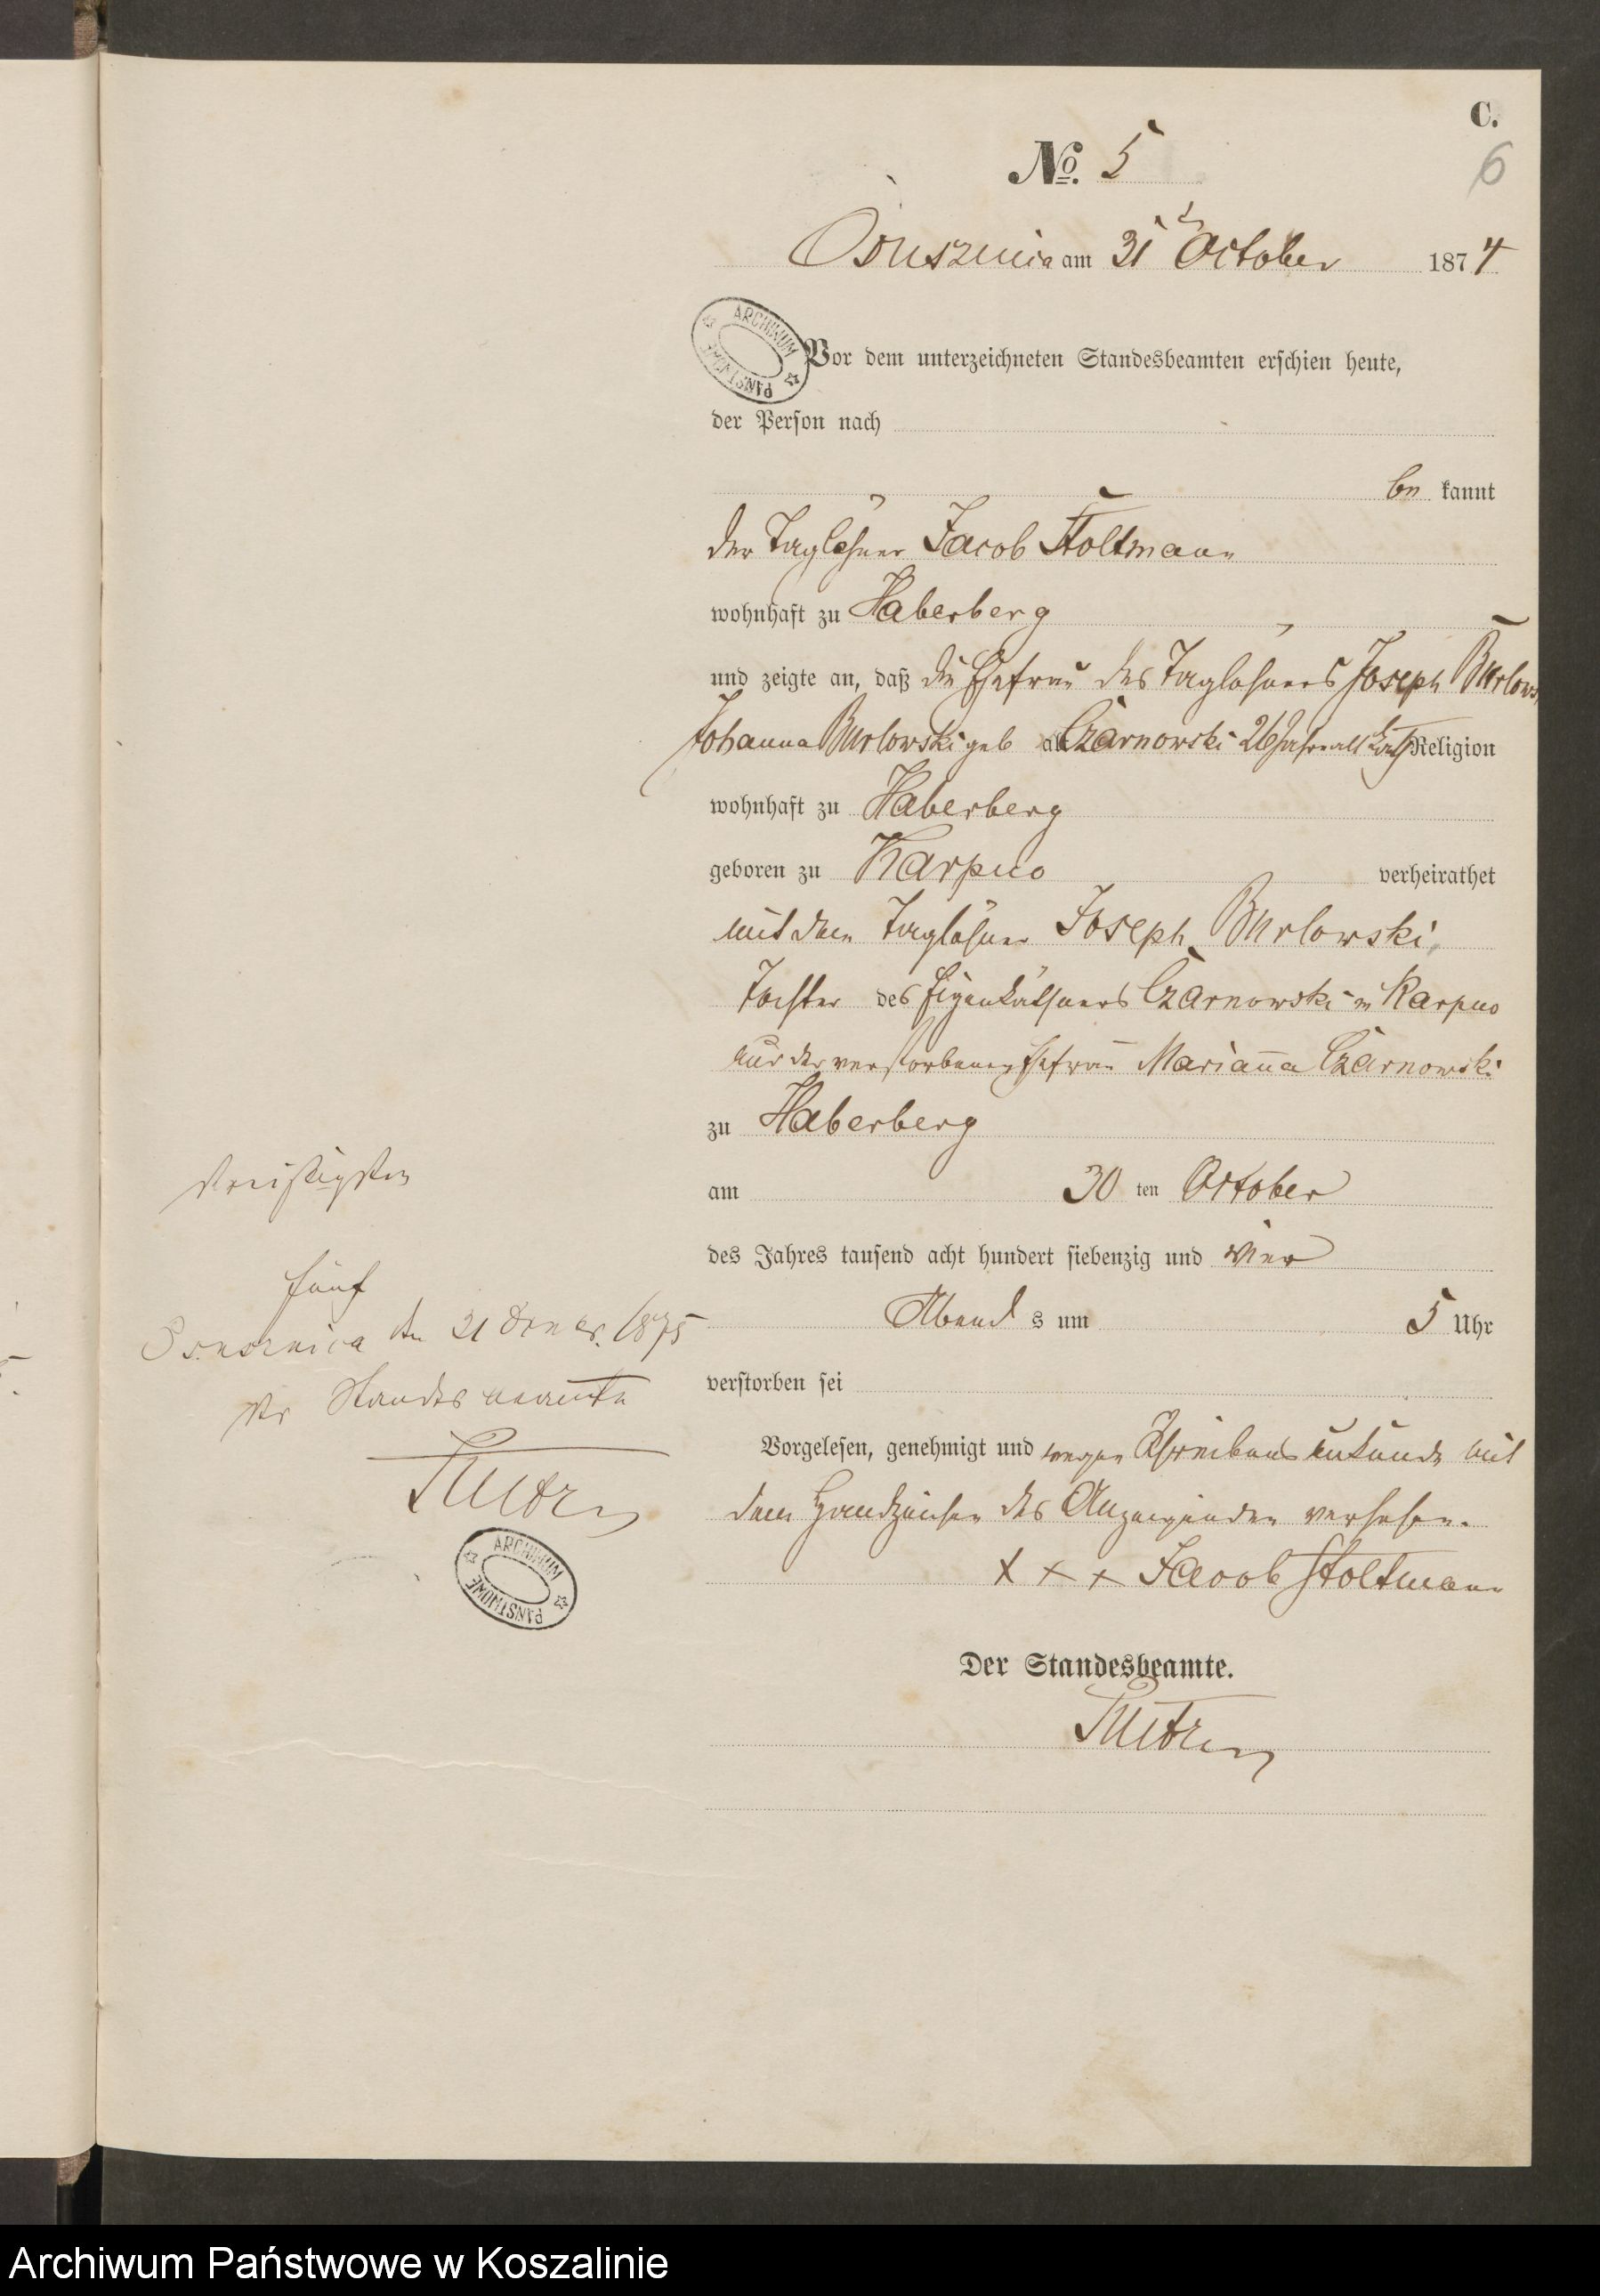 C.
6
No. 5
Osusznica am 31 October 1874
ARCHIWUM PAŃSTWOWE
Vor dem unterzeichneten Standesbeamten erschien heute,
der Person nach
be kannt
der Taglöhner Jacob Stoltmann
wohnhaft zu Haberberg
und zeigte an, daß die Ehefrau des Taglöhners Joseph Burlows
Johanna Burlowski geb Czarnowski 26 Jahre alt kath Religion
wohnhaft zu Haberberg
geboren zu Karpno verheirathet
mit dem Taglöhner Joseph Burlowski
Tochter des Eigenkäthners Czarnowski in Karpno
und der verstorbenen Ehefrau Marianna Czarnowski
zu Haberberg
am 30 ten October
des Jahres tausend acht hundert siebenzig und vier
Abend s um 5 Uhr
verstorben sei
Vorgelesen, genehmigt und wegen Schreibensunkunde mit
dem Handzeichen des Anzeigenden versehen.
+ + + Jacob Stoltmann
Der Standesbeamte.
dreißigsten
fünf
Osusznica den 31 1875
Der Standesbeamte
ARCHIWUM PAŃSTWOWE
Archiwum Państwowe w Koszalinie